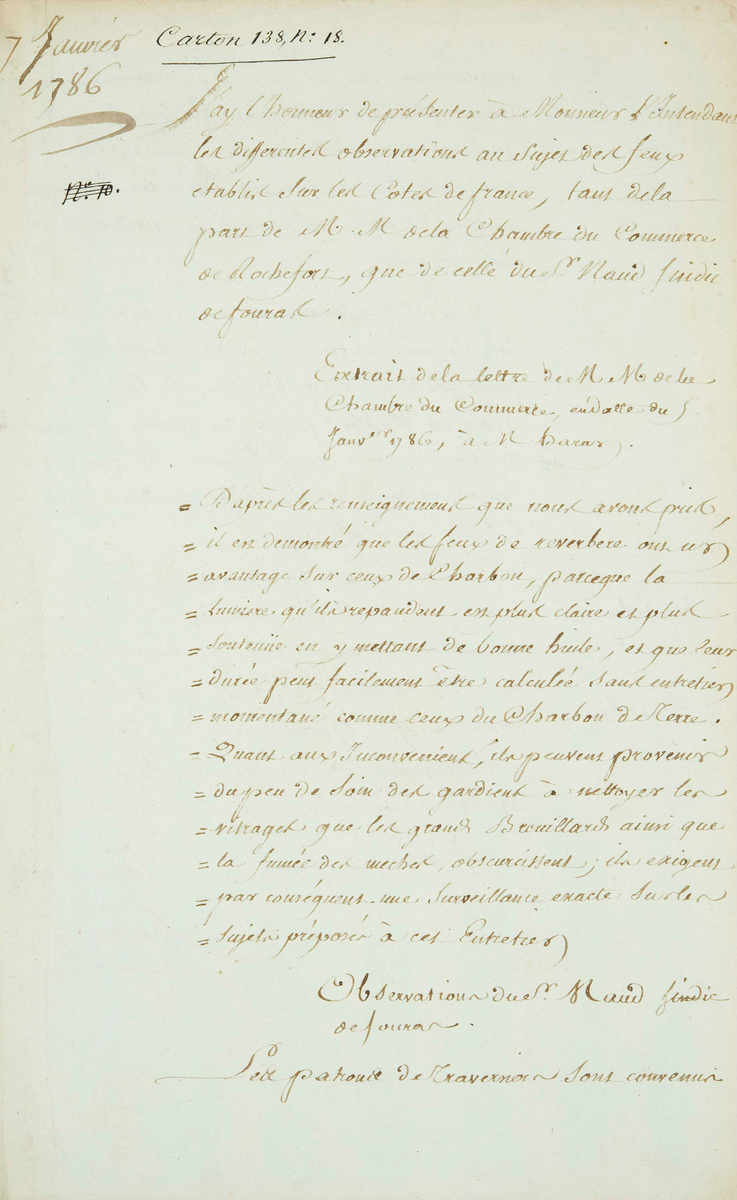 7 Janvier
1786
Carton 138, N.º 18.
N.º 10.
J'ay l'honneur de présenter à Monsieur L'Intendant
les differentes observations au sujet des feux
etablis sur les Cotes de france, tant de la
part de M. M de la Chambre du Commerce
de Rochefort, que de celle du Sr. Naud sindic
de fouras.
Extrait de la lettre de M M de la
Chambre du Commerce, en datte du 5
Janver. 1786, à M
= D'après les renseignemens que nous avons pris,
= il est demontré que les feux de reverbere ont un
= avantage sur ceux de Charbon, parceque la
= lumiere qu'ils repandent est plus claire et plus
= soutenüe en y mettant de bonne huile, et que leur
= durée peut facilement être calculée sans entretien
= momentané comme ceux du Charbon de Terre.
= Quant aux Inconveniens, ils peuvent provenir
= du peu de soin des gardiens à nettoyer les
= vitrages que les grands Brouillards ainsi que
= la fumée des meches, obscurcissent; ils exigent
= par conséquent une surveillance exacte sur les
= sujets préposés à cet Entretien
Observations du Sr. Naud sindic
de fouras.
Les patrons de Traverniers sont convenus